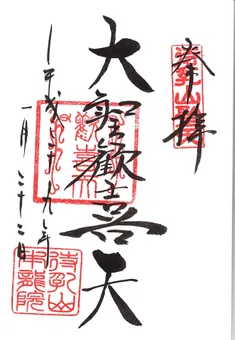 奉拝
大聖歡喜天
平成二十九年
一月二十二日
待乳山
本龍院